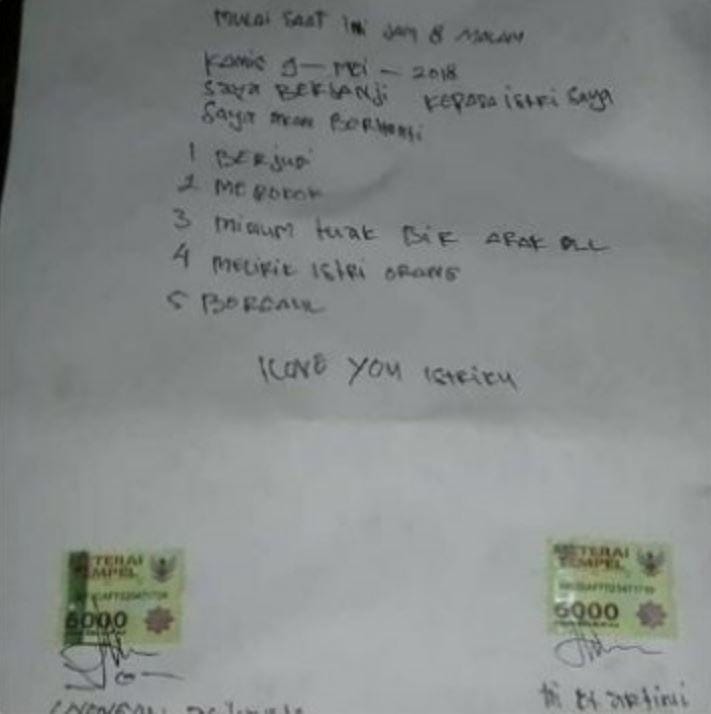 MULAI SAAT INI JAM 8 MALAM
KAMIS 9 - MEI - 2018
SAYA BERJANJI KEPADA ISTRI SAYA
SAYA AKAN BERHENTI
1 BERJUDI
2 MEROKOK
3 MINUM tuAK BIR ARAK DLL
4 MELIRIK ISTRI ORANG
5 BORGAUL
I LOVE YOU ISTRIKU
METERAI TEMPEL
6000
METERAI TEMPEL
6000